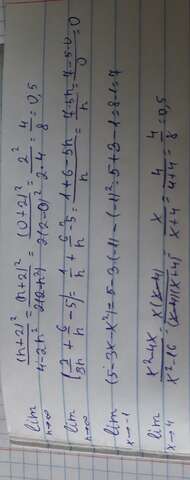 lim n→∞ (n+2)²/4-2n² = (n+2)²/2(2-n²) = (0+2)²/2(2-0)² = 2²/2·4 = 4/8 = 0,5
lim n→∞ (1/3n + 6/n - 5) = 1/n + 6/n - 5 = 1+6-5n/n = 7-5n/n = 7-5·0/0 = 0
lim x→-1 (5-3x-x²) = 5-3·(-1)-(-1)² = 5+3-1 = 8-1 = 7
lim x→4 x²-4x/x²-16 = x(x-4)/(x-4)(x+4) = x/x+4 = 4/4+4 = 4/8 = 0,5